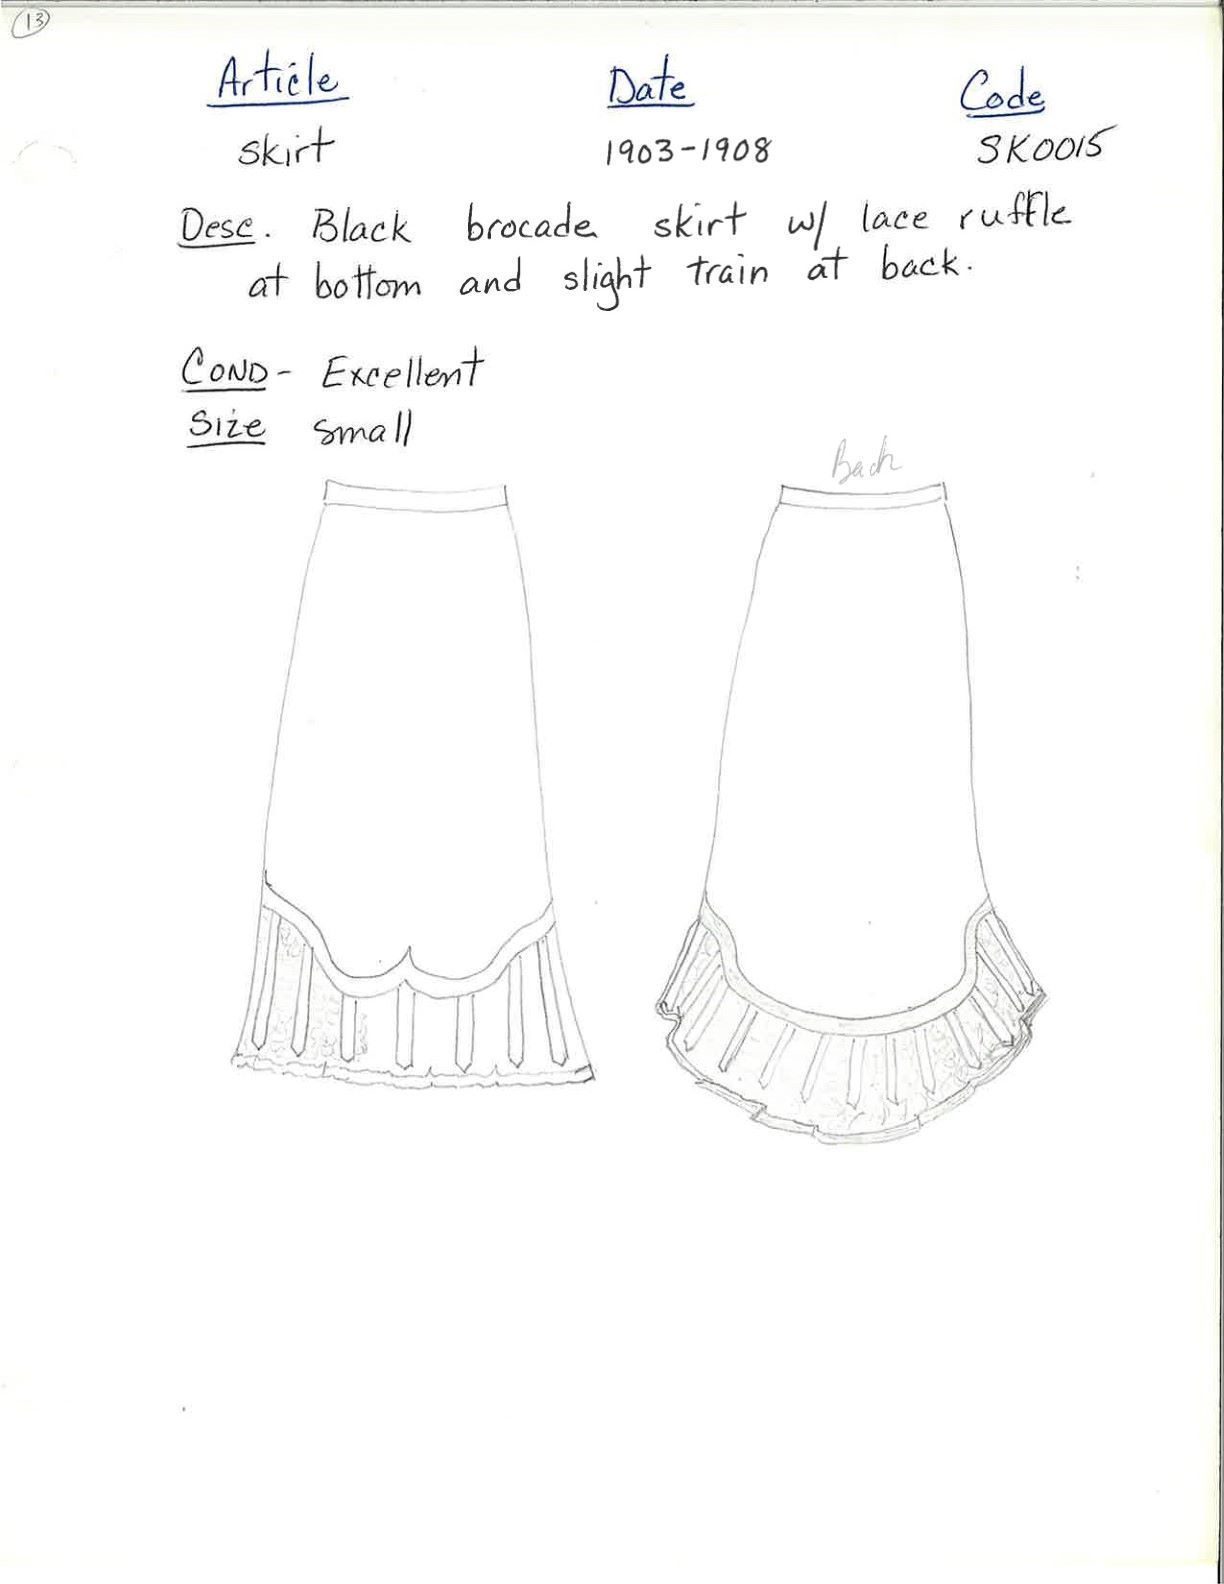 13
Article Date Code
skirt 1903-1908 SK0015
Desc. Black brocade skirt w/ lace ruffle
at bottom and slight train at back.
COND- Excellent
Size small
Back